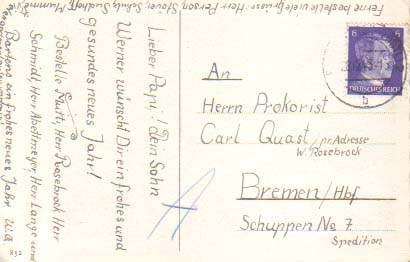 Ferne bestelle viele Grüsse: Herr Person
Lieber Papi! Dein Sohn
Werner wünscht Dir ein frohes und
gesundes neues Jahr!
Bestelle Herr Rosebrock Herr
Schmidt, Herr Abeltmeyer, Herr Lange und
Bartens ein frohes neues Jahr
6 6
DEUTSCHES REICH
b
An
Herrn Prokorist
Carl Quast pr. Adresse
W. Rosebrock
Bremen/Hbf
Schuppen No 7
Spedition